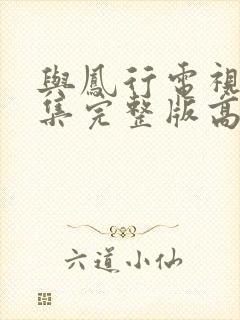 與鳳行電視
集完整版高
六道小仙